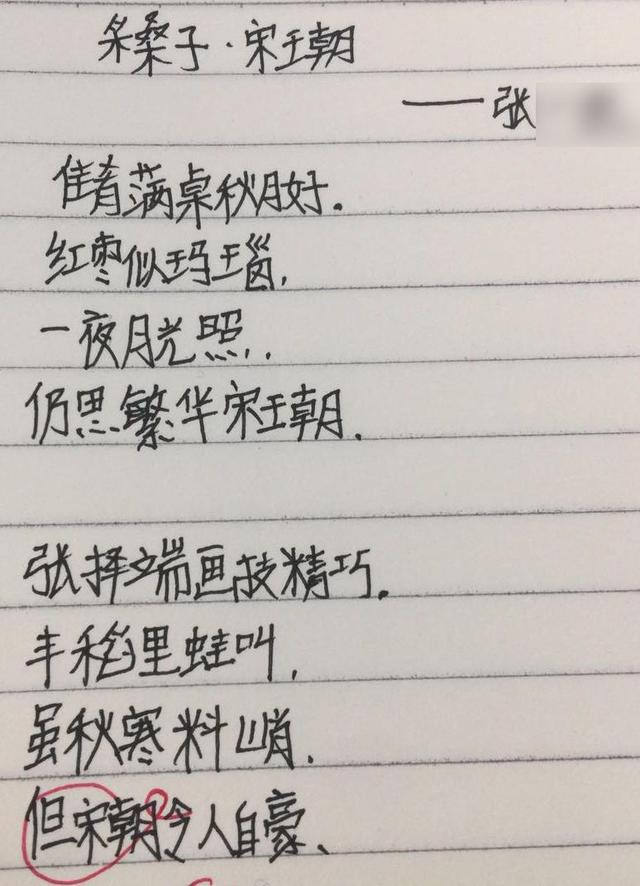 采桑子·宋王朝
——张
佳肴满桌秋月好.
红枣似玛瑙,
一夜月光照.
仍思繁华宋王朝.
张择端画技精巧.
丰稻里蛙叫,
虽秋寒料峭.
但宋朝令人自豪、